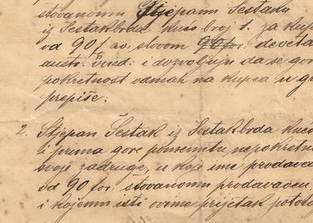 stovanomu Stjepanu Šestaku
iz Šestakbrda kuć broj 1. za kup
od 90 f av. slovom 90 for. deveta
austr. vried: i dozvoljuju da se gor
pokretnost odmah na kupca u g
prepiše.
2. Stjepan Šestak iz Šestakbrda kuć
i prima gor pomenutu nepokretn
svoje zadruge, u koje ime prodava
od 90 for. stovanomu prodavaocu,
i kojemu isti ovime prijetak potv